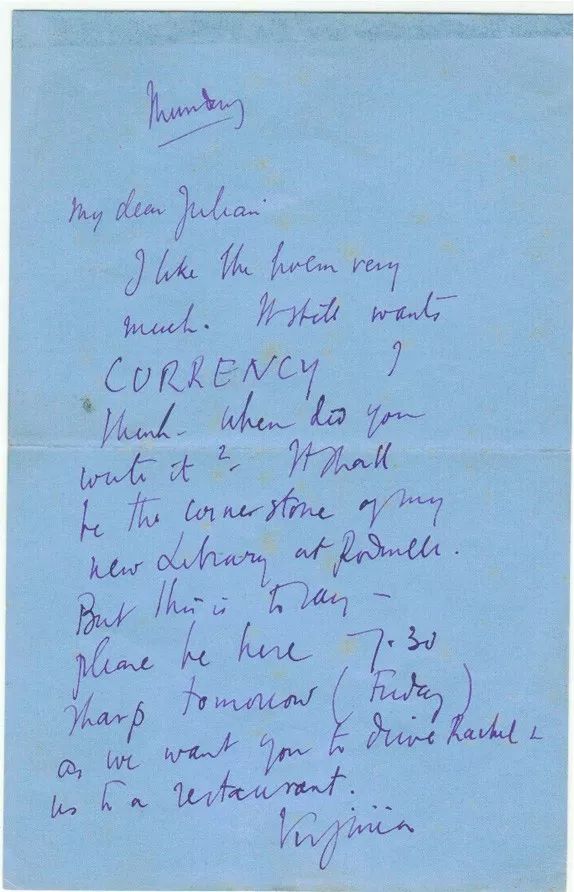 Thursday
My dear Julian
I like the poem very
much. It still wants
CURRENCY I
think - when did you
write it? - It shall
be the cornerstone of my
new Library at Rodmell.
But this is to say -
please be here 7.30
sharp tomorrow (Friday)
as we want you to drive Rachel &
us to a restaurant.
Virginia